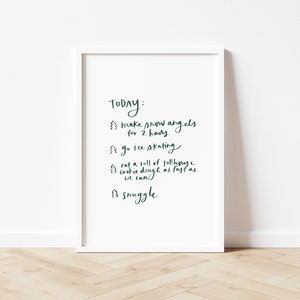 TODAY:
make snow angels
for 2 hours.
go ice skating
eat a roll of tollhouse
cookie dough as fast as
we can
snuggle